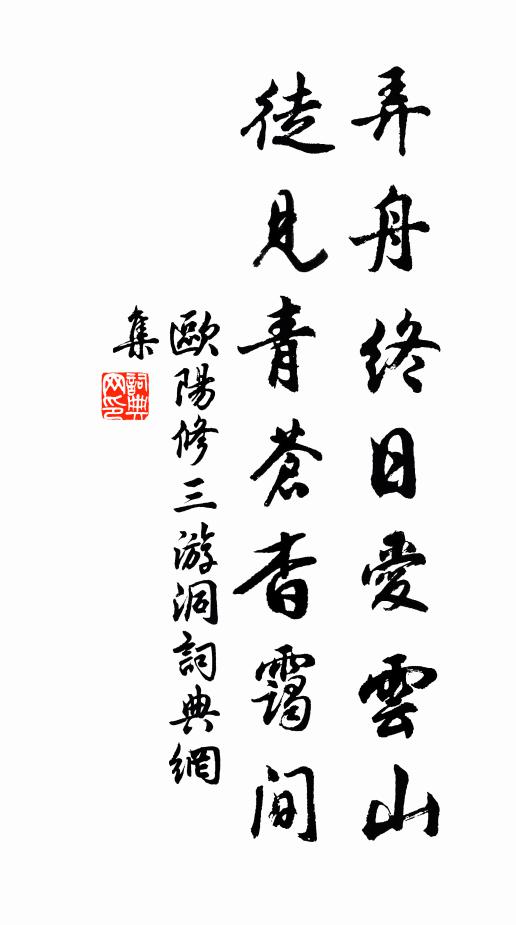 弄舟終日愛雲山
徒見青蒼杳靄間
歐陽修三游洞詞典網
集
詞典
网印